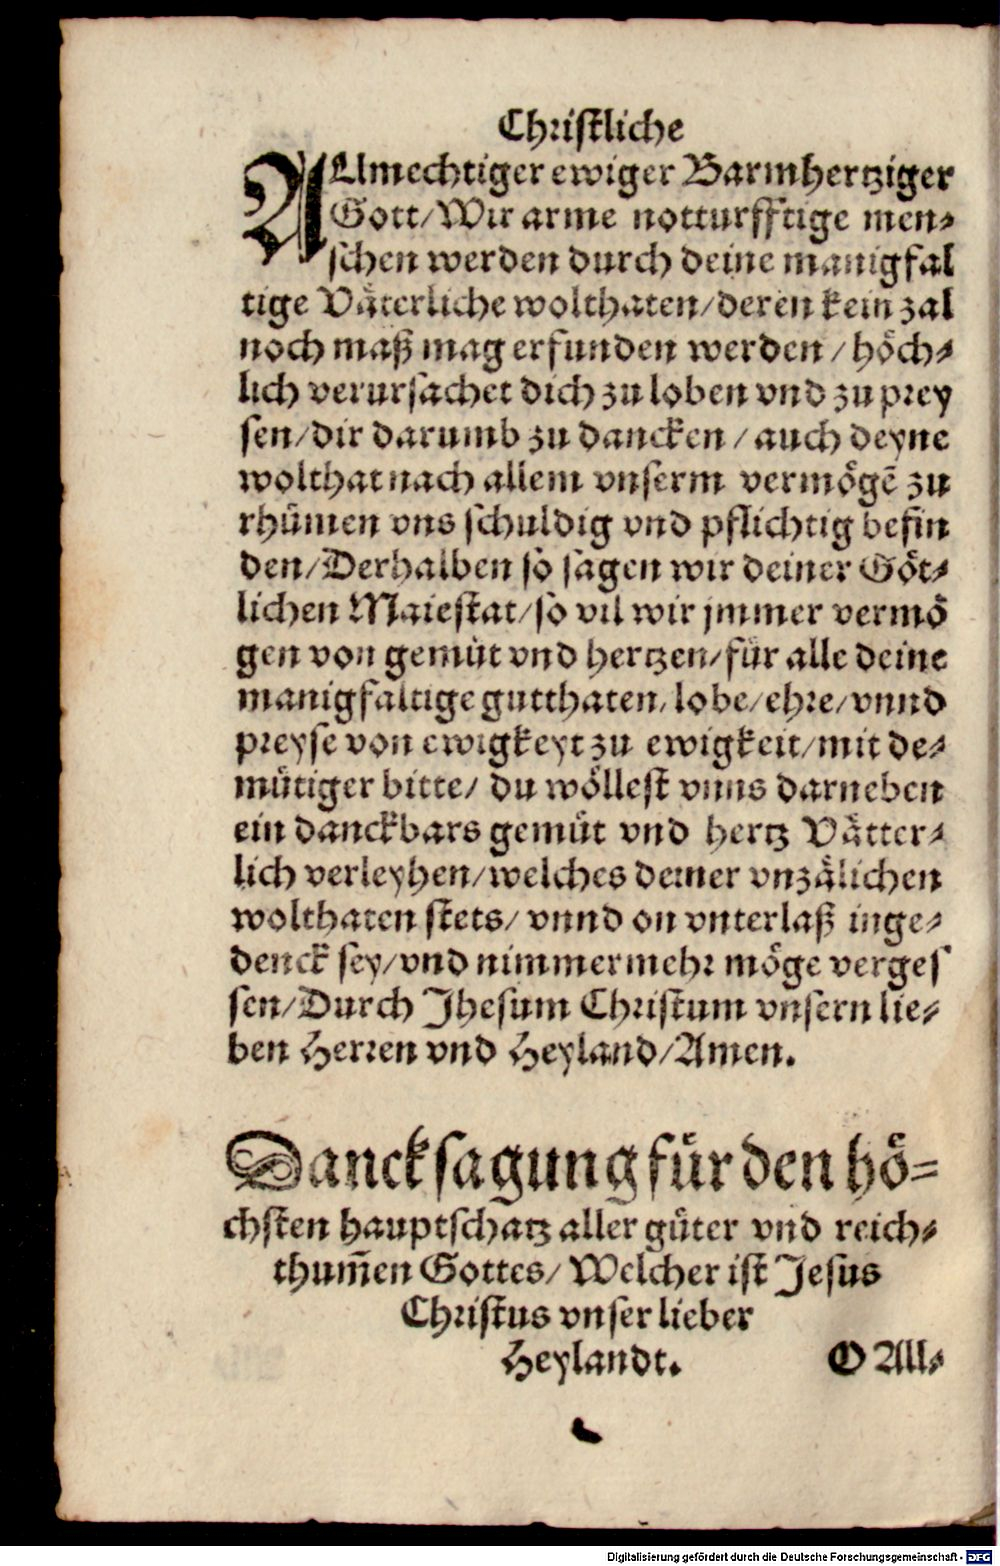 Christliche
ALlmechtiger ewiger Barmhertziger
Gott/Wir arme notturfftige men-
schen werden durch deine manigfal
tige Väterliche wolthaten/deren kein zal
noch maß mag erfunden werden/höch-
lich verursachet dich zu loben vnd zu prey
sen/dir darumb zu dancken/auch deyne
wolthat nach allem vnserm vermögē zu
rhümen vns schuldig vnd pflichtig befin
den/Derhalben so sagen wir deiner Göt-
lichen Maiestat/so vil wir jmmer vermö
gen von gemüt vnd hertzen/für alle deine
manigfaltige gutthaten/lobe/ehre/vnnd
preyse von ewigkeyt zu ewigkeit/mit de-
mütiger bitte/ du wöllest vnns darneben
ein danckbars gemüt vnd hertz Vätter-
lich verleyhen/welches deiner vnzälichen
wolthaten stets/vnnd on vnterlaß inge-
denck sey/vnd nimmermehr möge verges
sen/Durch Jhesum Christum vnsern lie-
ben Herren vnd Heyland/Amen.
Dancksagung für den hö-
chsten hauptschatz aller güter vnd reich-
thum̄en Gottes/Welcher ist Jesus
Christus vnser lieber
Heylandt. O All-
Digitalisierung gefördert durch die Deutsche Forschungsgemeinschaft - DFG